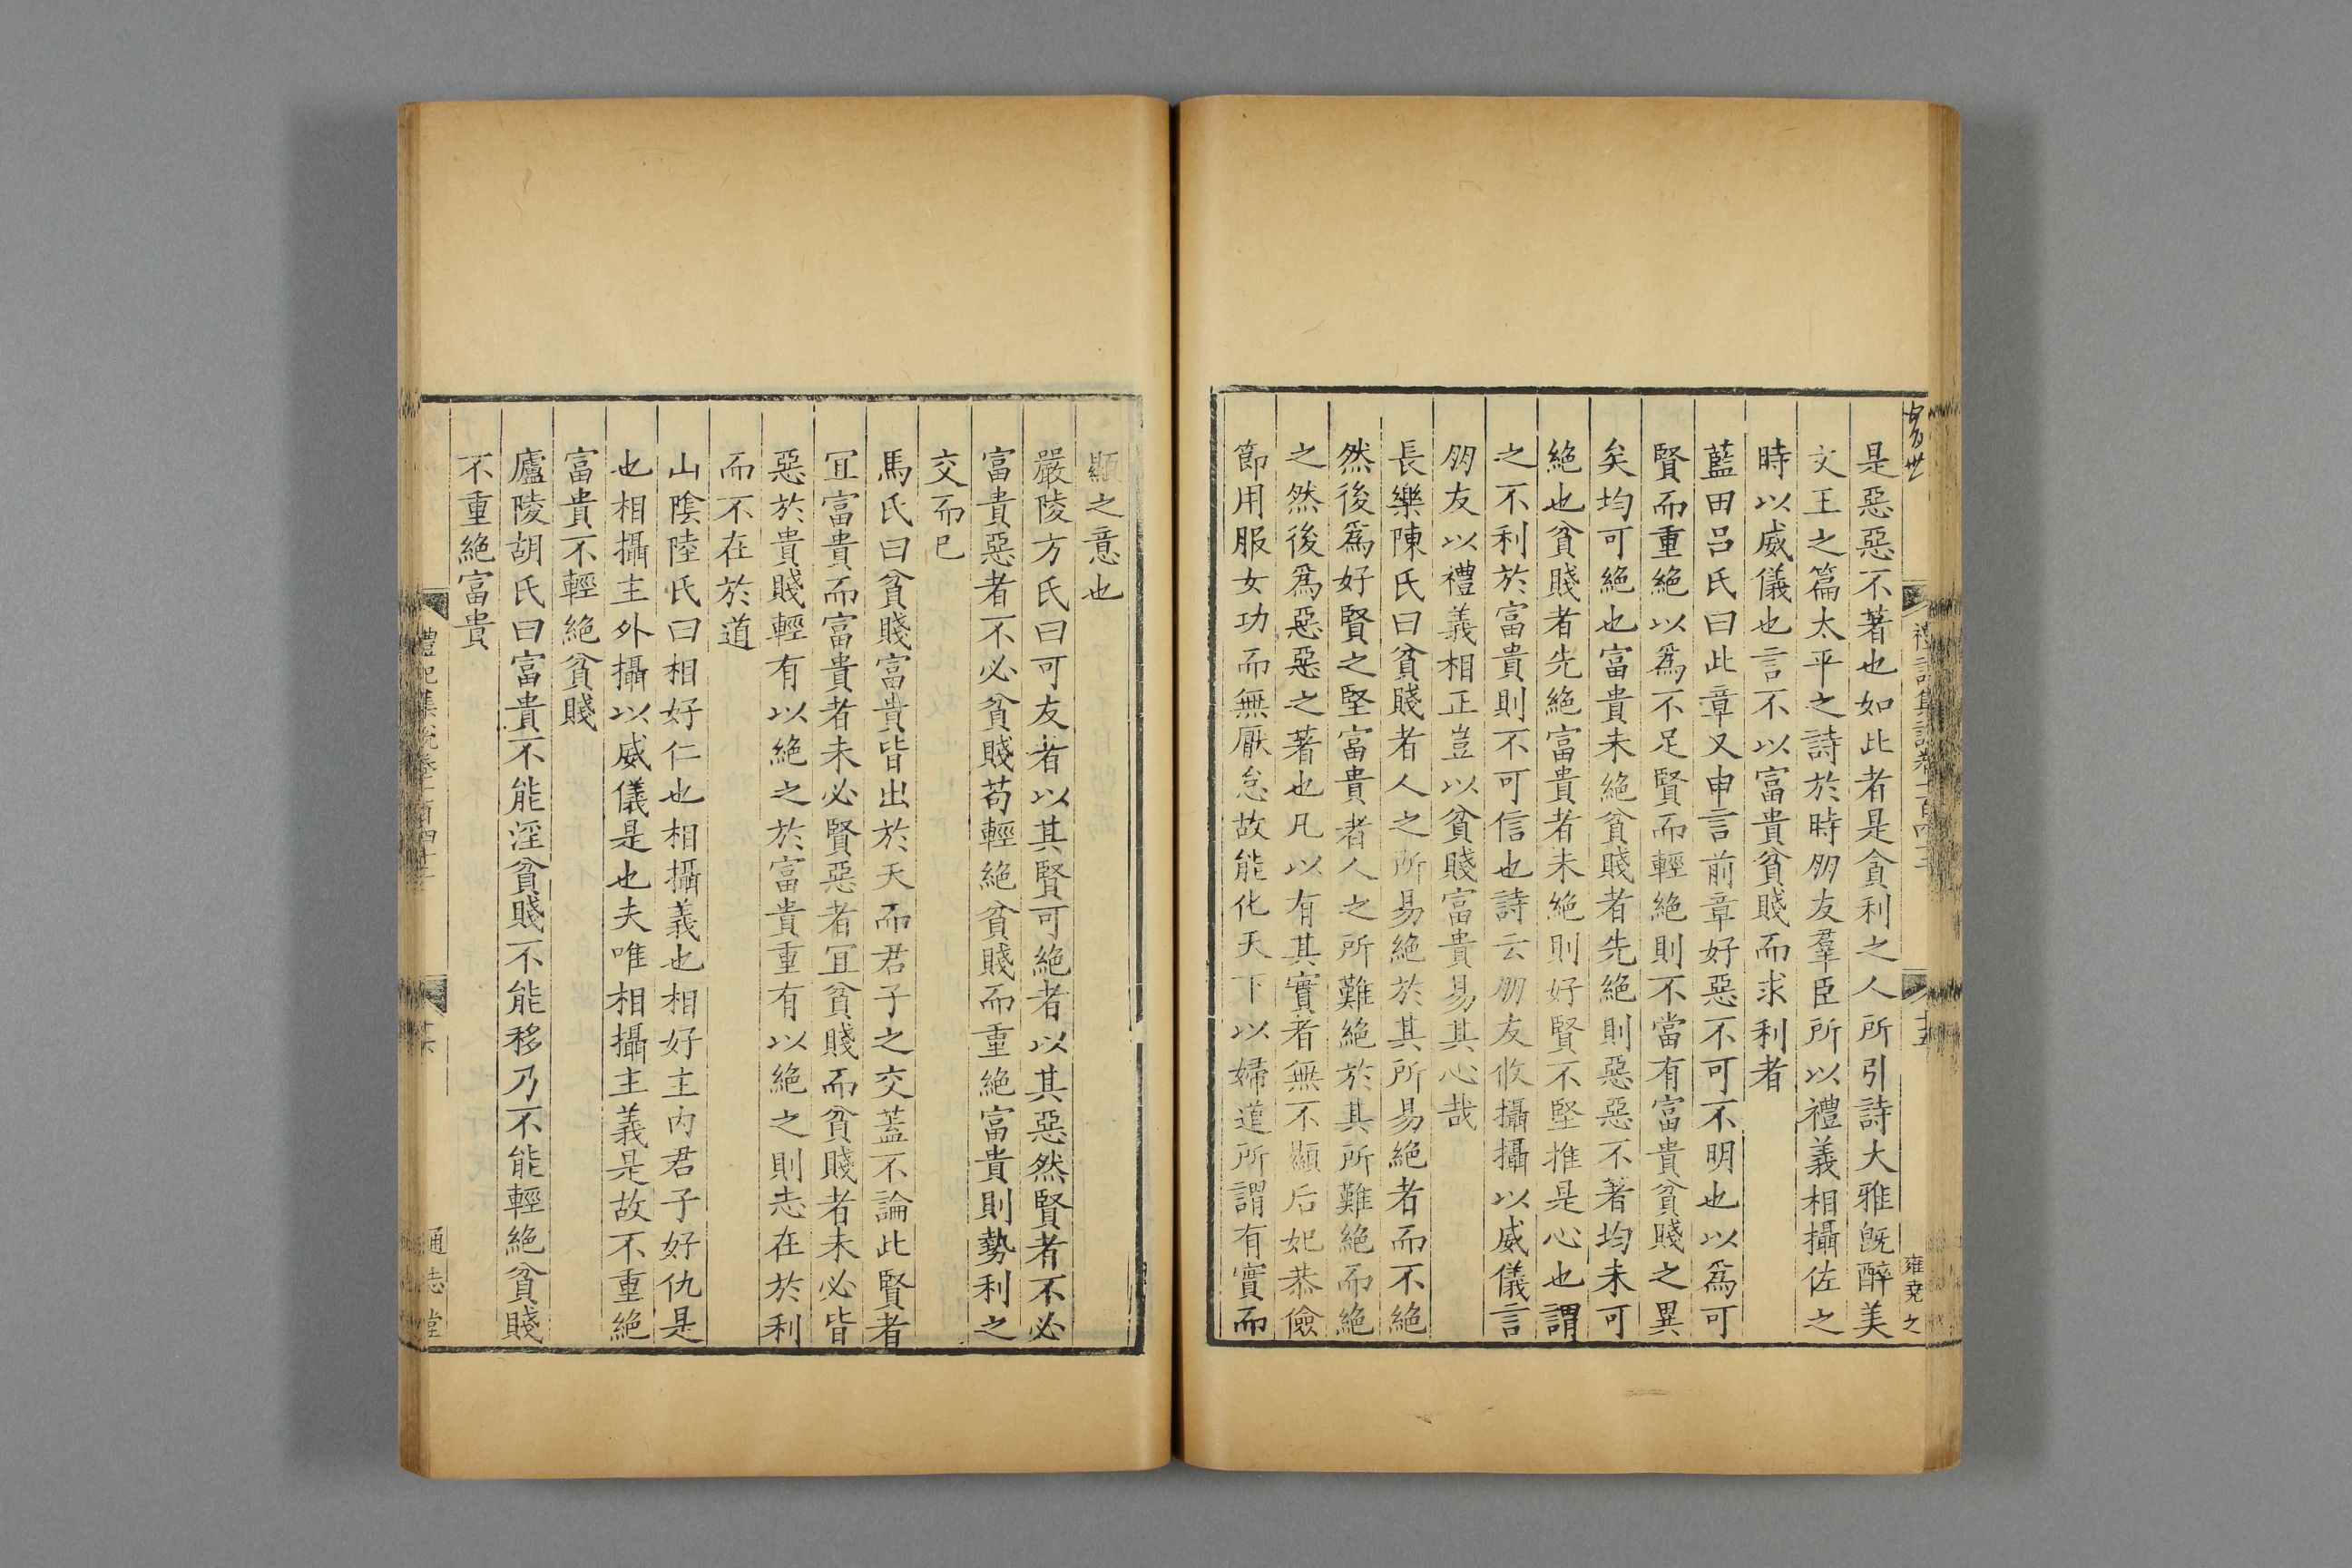 是惡惡不著也如此者是貪利之人所引詩大雅旣醉美
文王之篇太平之詩於時朋友羣臣所以禮義相攝佐之
時以威儀也言不以富貴貧賤而求利者
藍田呂氏曰此章又申言前章好惡不可不明也以爲可
賢而重絕以爲不足賢而輕絕則不當有富貴貧賤之異
矣均可絕也富貴未絕貧賤者先絕則惡惡不著均未可
絕也貧賤者先絕富貴者未絕則好賢不堅推是心也謂
之不利於富貴則不可信也詩云朋友攸攝攝以威儀言
朋友以禮義相正豈以貧賤富貴易其心哉
長樂陳氏曰貧賤者人之所易絕於其所易絕者而不絕
然後爲好賢之堅富貴者人之所難絕於其所難絕而絕
之然後爲惡惡之著也凡以有其實者無不顯后妃恭儉
節用服女功而無厭怠故能化天下以婦道所謂有實而
顯之意也
嚴陵方氏曰可友者以其賢可絕者以其惡然賢者不必
富貴惡者不必貧賤苟輕絕貧賤而重絕富貴則勢利之
交而已
馬氏曰貧賤富貴皆出於天而君子之交蓋不論此賢者
宜富貴而富貴者未必賢惡者宜貧賤而貧賤者未必皆
惡於貴賤輕有以絕之於富貴重有以絕之則志在於利
而不在於道
山陰陸氏曰相好仁也相攝義也相好主內君子好仇是
也相攝主外攝以威儀是也夫唯相攝主義是故不重絕
富貴不輕絕貧賤
廬陵胡氏曰富貴不能淫貧賤不能移乃不能輕絕貧賤
不重絕富貴
禮記集說卷一百四十二
通志堂